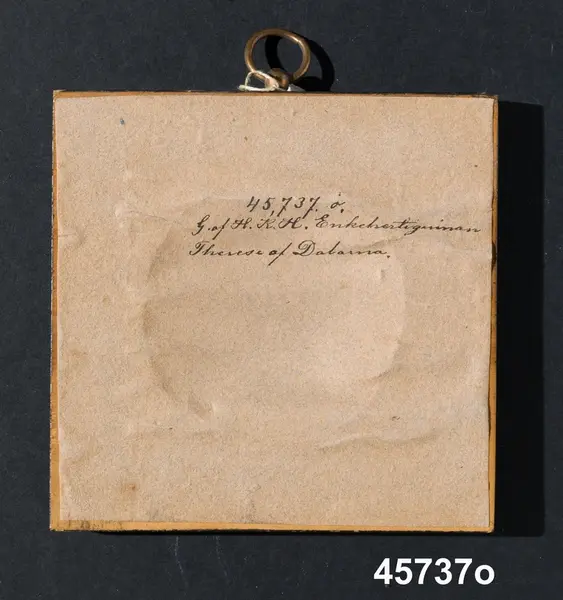 45,737. o.
G. af H. K. H. Enkehertiginnan
Therese af Dalarna.
45737o